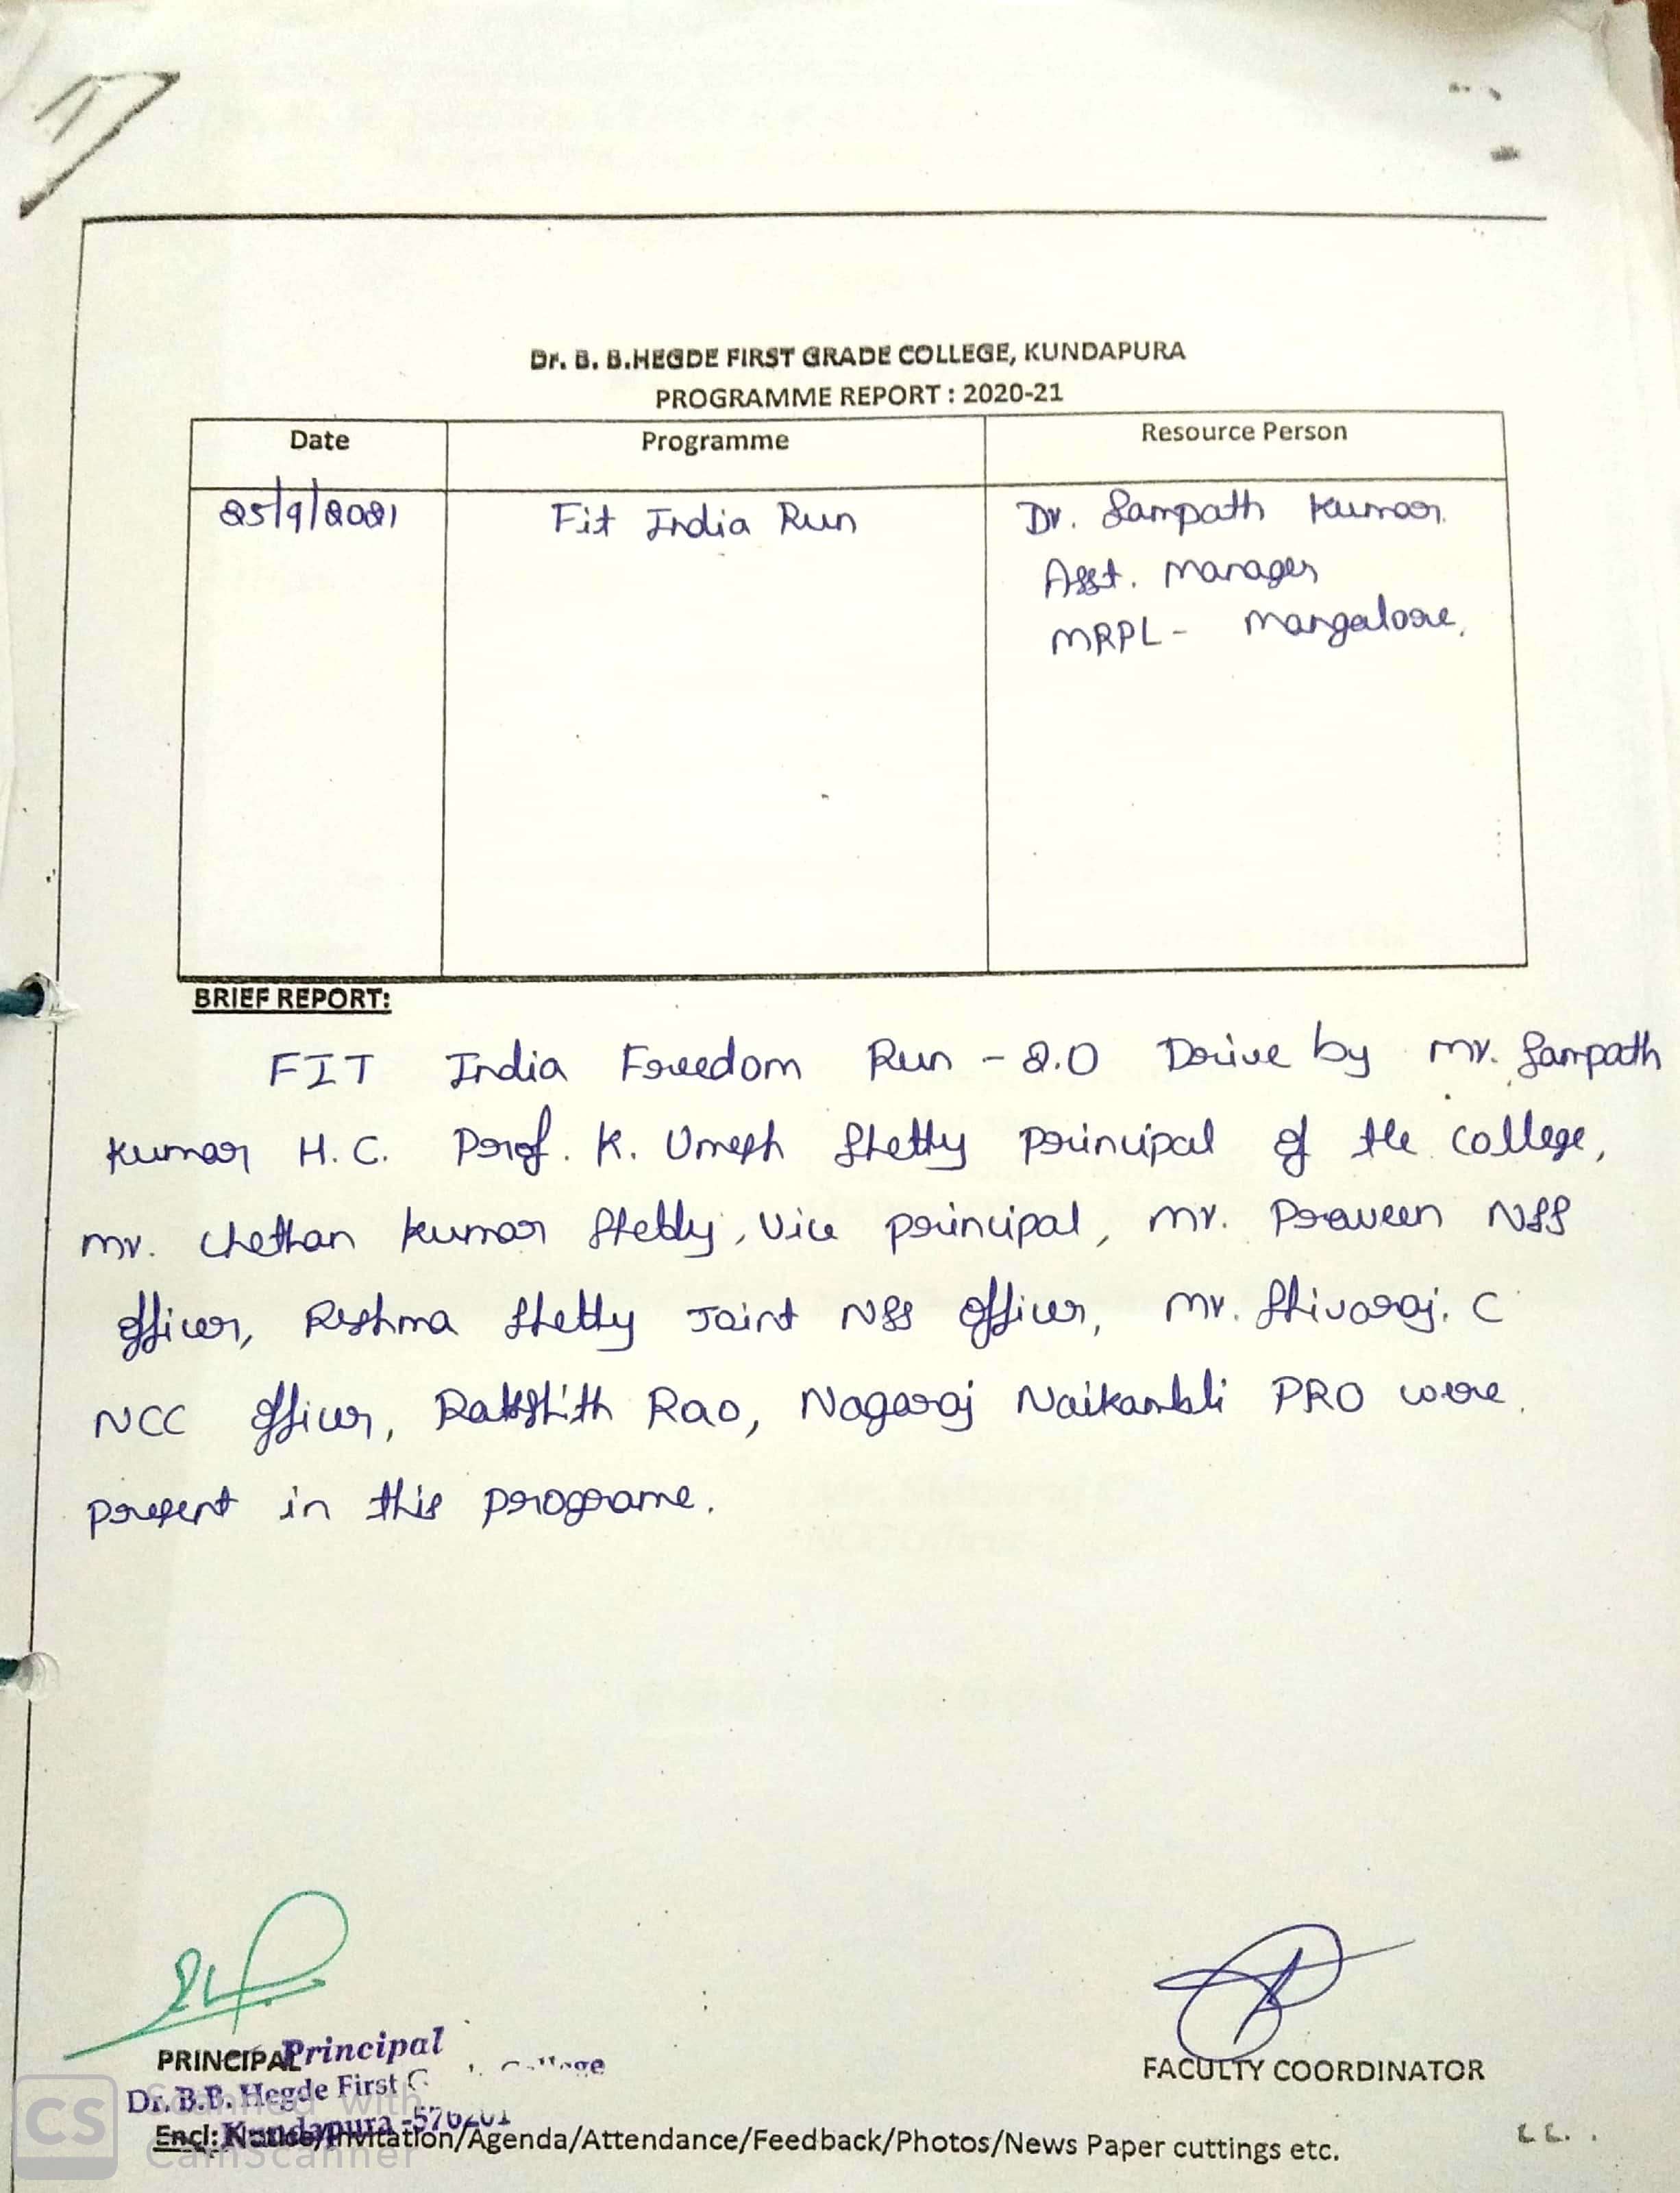 Dr. B. B.HEGDE FIRST GRADE COLLEGE, KUNDAPURA
PROGRAMME REPORT : 2020-21
Date Programme Resource Person
25/9/2021 Fit India Run Dr. Sampath Kumar.
Asst. Manager
MRPL - Mangalore.
BRIEF REPORT:
FIT India Freedom Run - 2.0 Drive by Mr. Sampath
Kumar H.C. Prof. K. Umesh Shetty principal of the college,
Mr. Chethan Kumar Shetty, Vice principal, Mr. Praveen NSS
officer, Reshma Shetty Joint NSS officer, Mr. Shivaraj. C
NCC officer, Rakshith Rao, Nagaraj Naikambli PRO were
present in this programe.
PRINCIPAL Principal
FACULTY COORDINATOR
Dr. B.B. Hegde First
Kundapura -576201
Encl: Notice/Invitation/Agenda/Attendance/Feedback/Photos/News Paper cuttings etc.
CS Scanned with
CamScanner